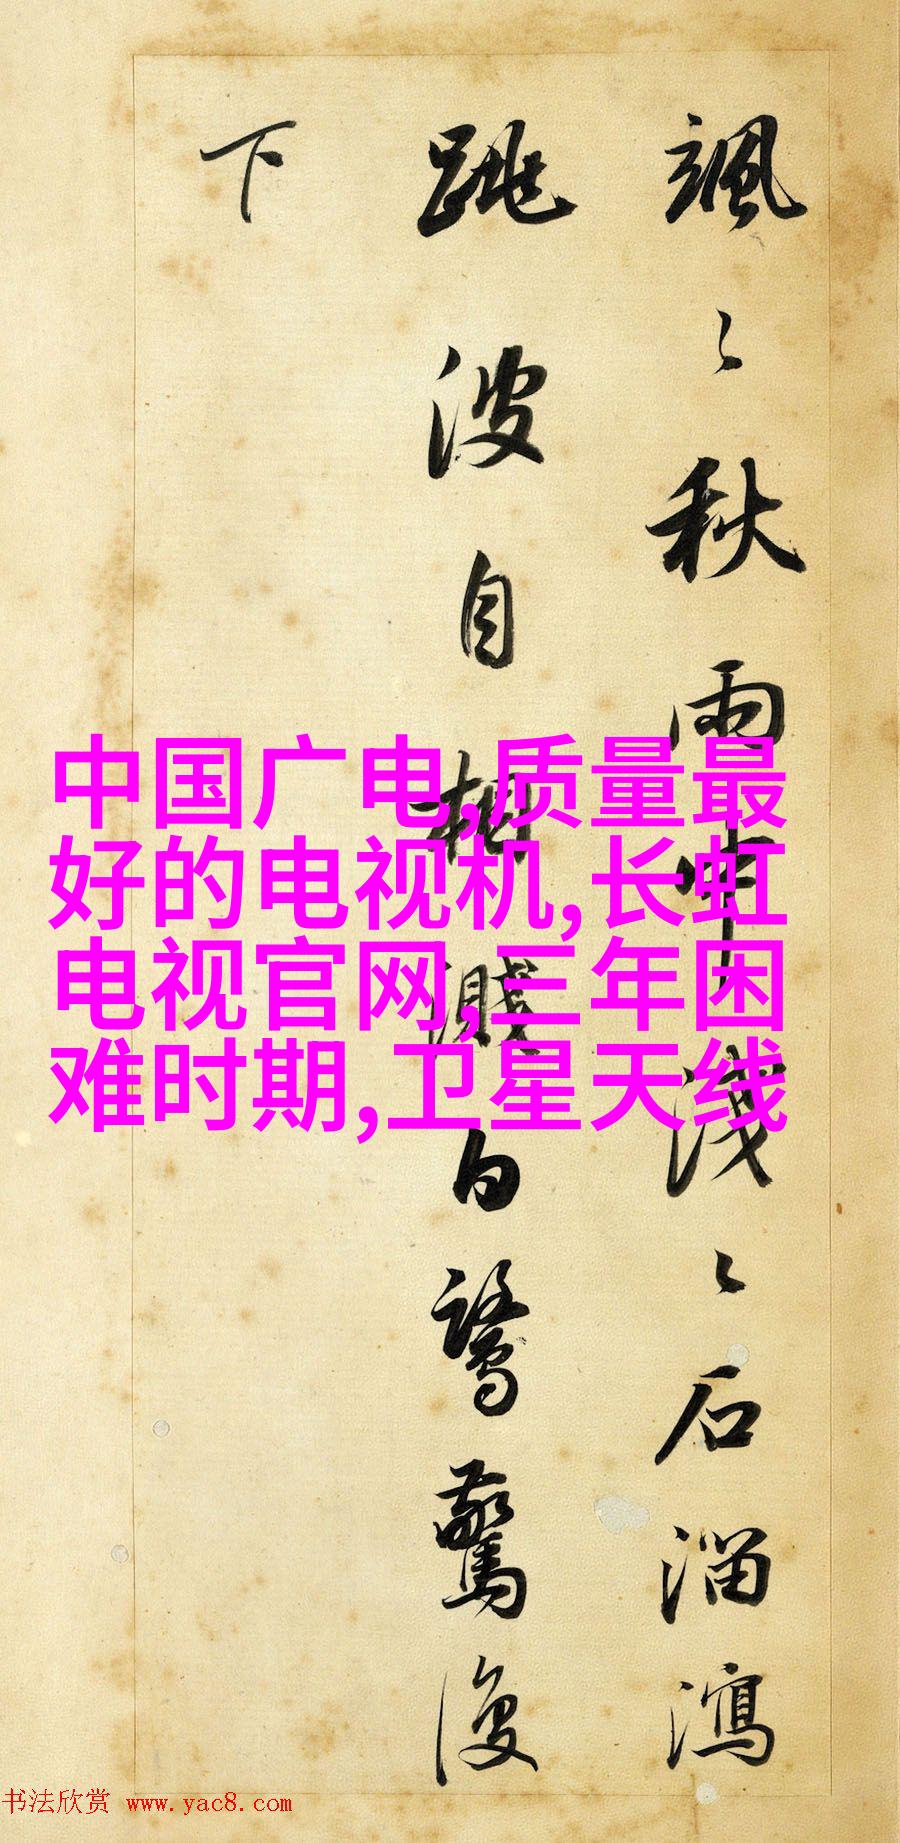 颯〻秋雨中淺〻石溜瀉
跳波自相濺白鷺驚復
下
中国广电,质量最
好的电视机,长虹
电视官网,三年困
难时期,卫星天线
书法欣赏 www.yac8.com